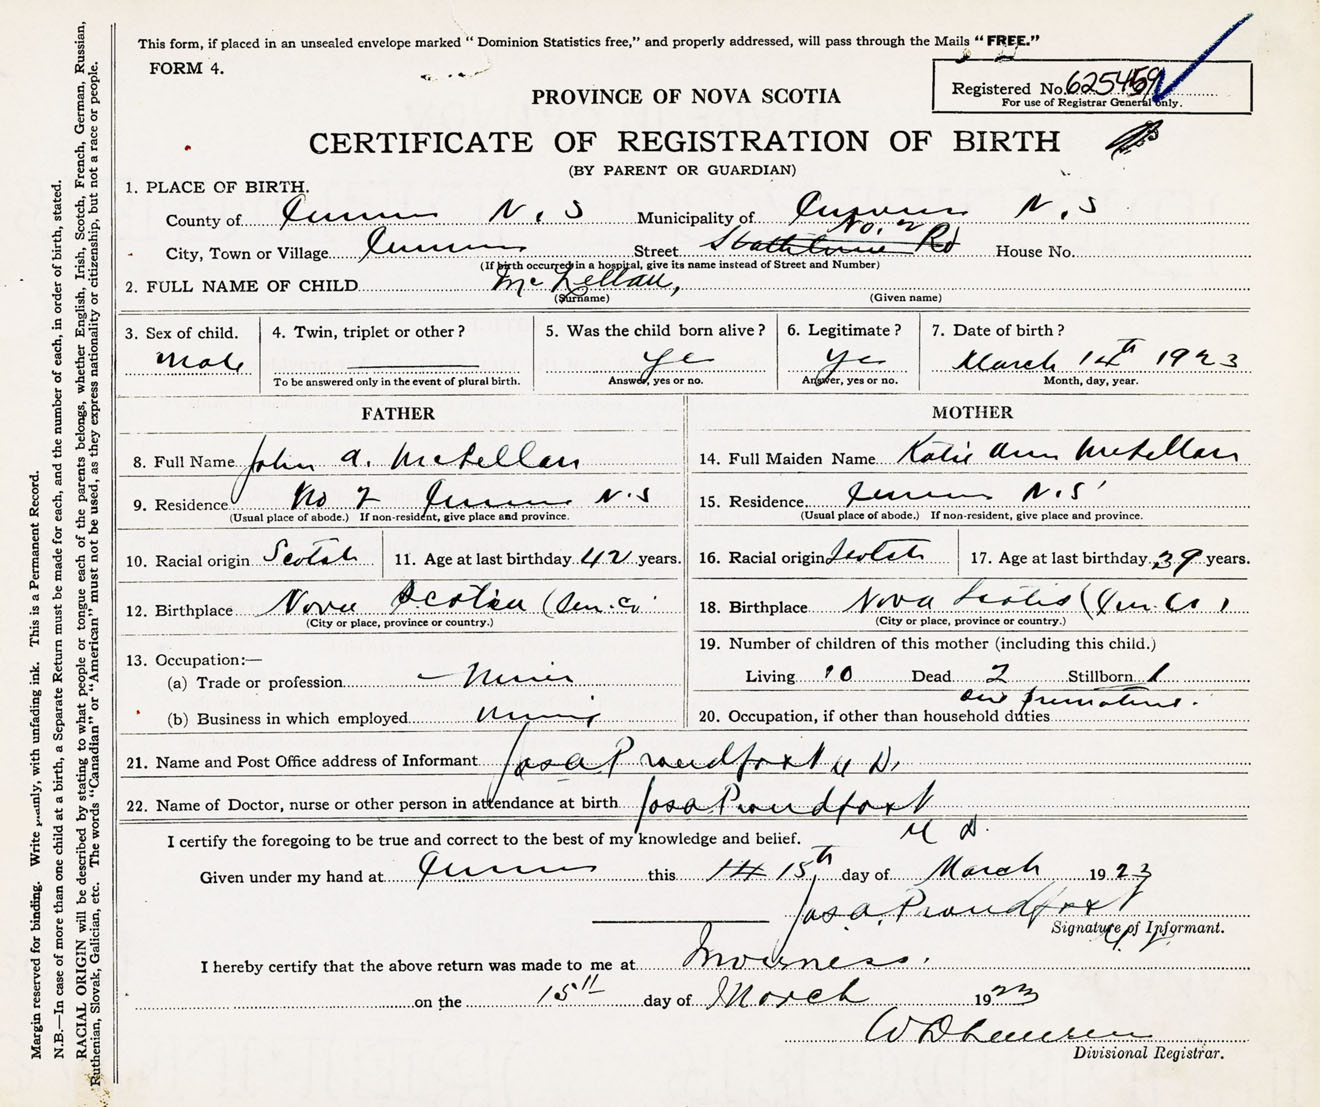 This form, if placed in an unsealed envelope marked “ Dominion Statistics free,” and properly addressed, will pass through the Mails “ FREE.”
FORM 4.
Registered No.
For use of Registrar General only.
PROVINCE OF NOVA SCOTIA
CERTIFICATE OF REGISTRATION OF BIRTH
(BY PARENT OR GUARDIAN)
1. PLACE OF BIRTH.
County of Inverness N.S Municipality of Inverness N.S
City, Town or Village Inverness Street No. 2 Rd House No.
(If birth occurred in a hospital, give its name instead of Street and Number)
2. FULL NAME OF CHILD McLellan,
(Surname) (Given name)
3. Sex of child. 4. Twin, triplet or other? 5. Was the child born alive? 6. Legitimate? 7. Date of birth?
Male Yes Yes March 14th 1923
To be answered only in the event of plural birth. Answer, yes or no. Answer, yes or no. Month, day, year.
FATHER
8. Full Name John A. McLellan
9. Residence No 2 Inverness N.S
(Usual place of abode.) If non-resident, give place and province.
10. Racial origin Scotch 11. Age at last birthday 42 years.
12. Birthplace Nova Scotia (Inv. Co.
(City or place, province or country.)
13. Occupation:—
(a) Trade or profession Miner
(b) Business in which employed Mining
MOTHER
14. Full Maiden Name Katie Ann McLellan
15. Residence Inverness N.S
(Usual place of abode.) If non-resident, give place and province.
16. Racial origin Scotch 17. Age at last birthday 39 years.
18. Birthplace Nova Scotia (Inv. Co.)
(City or place, province or country.)
19. Number of children of this mother (including this child.)
Living 10 Dead 2 Stillborn 1
one premature.
20. Occupation, if other than household duties
21. Name and Post Office address of Informant Jas A Proudfoot M D.
22. Name of Doctor, nurse or other person in attendance at birth Jas A Proudfoot
M D.
I certify the foregoing to be true and correct to the best of my knowledge and belief.
Given under my hand at Inverness this 14 15th day of March 1923
Jas A. Proudfoot
Signature of Informant.
I hereby certify that the above return was made to me at Inverness.
on the 15th day of March 1923
W D
Divisional Registrar.
Margin reserved for binding. Write plainly, with unfading ink. This is a Permanent Record.
N.B.—In case of more than one child at a birth, a Separate Return must be made for each, and the number of each, in order of birth, stated.
RACIAL ORIGIN will be described by stating to what people or tongue each of the parents belongs, whether English, Irish, Scotch, French, German, Russian,
Ruthenian, Slovak, Galician, etc. The words “Canadian” or “American” must not be used, as they express nationality or citizenship, but not a race or people.